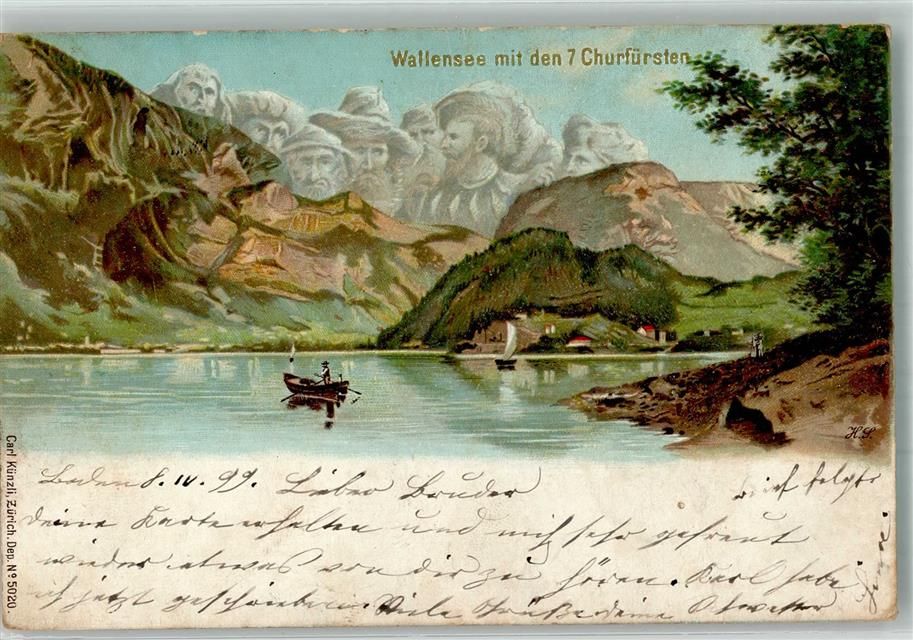 Wallensee mit den 7 Churfürsten
H.S.
Carl Künzli, Zürich. Dep. Nº 5020.
Baden 8. IV. 99. Lieber Bruder
deine Karte erhalten und mich sehr gefreut
wieder etwas von dir zu hören. Karl habe
ich jetzt geschrieben. Viele Grüße deine Schwester